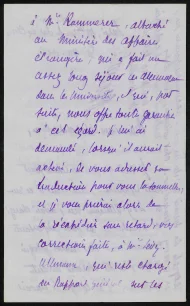 à Mr Kammerer, attaché
au Ministère des affaires
étrangères, qui a fait un
assez long séjour en Allemagne
dans les Universités, et qui, par
suite, nous offre toute garantie
à cet égard. Je lui ai
demandé, lorsqu'il aurait
achevé, de vous adresser sa
traduction pour vous la soumettre
et je vous prierai alors de
la réexpédier sans retard, vos
corrections faites, à Mr
qui reste chargé
du Rapport sur les